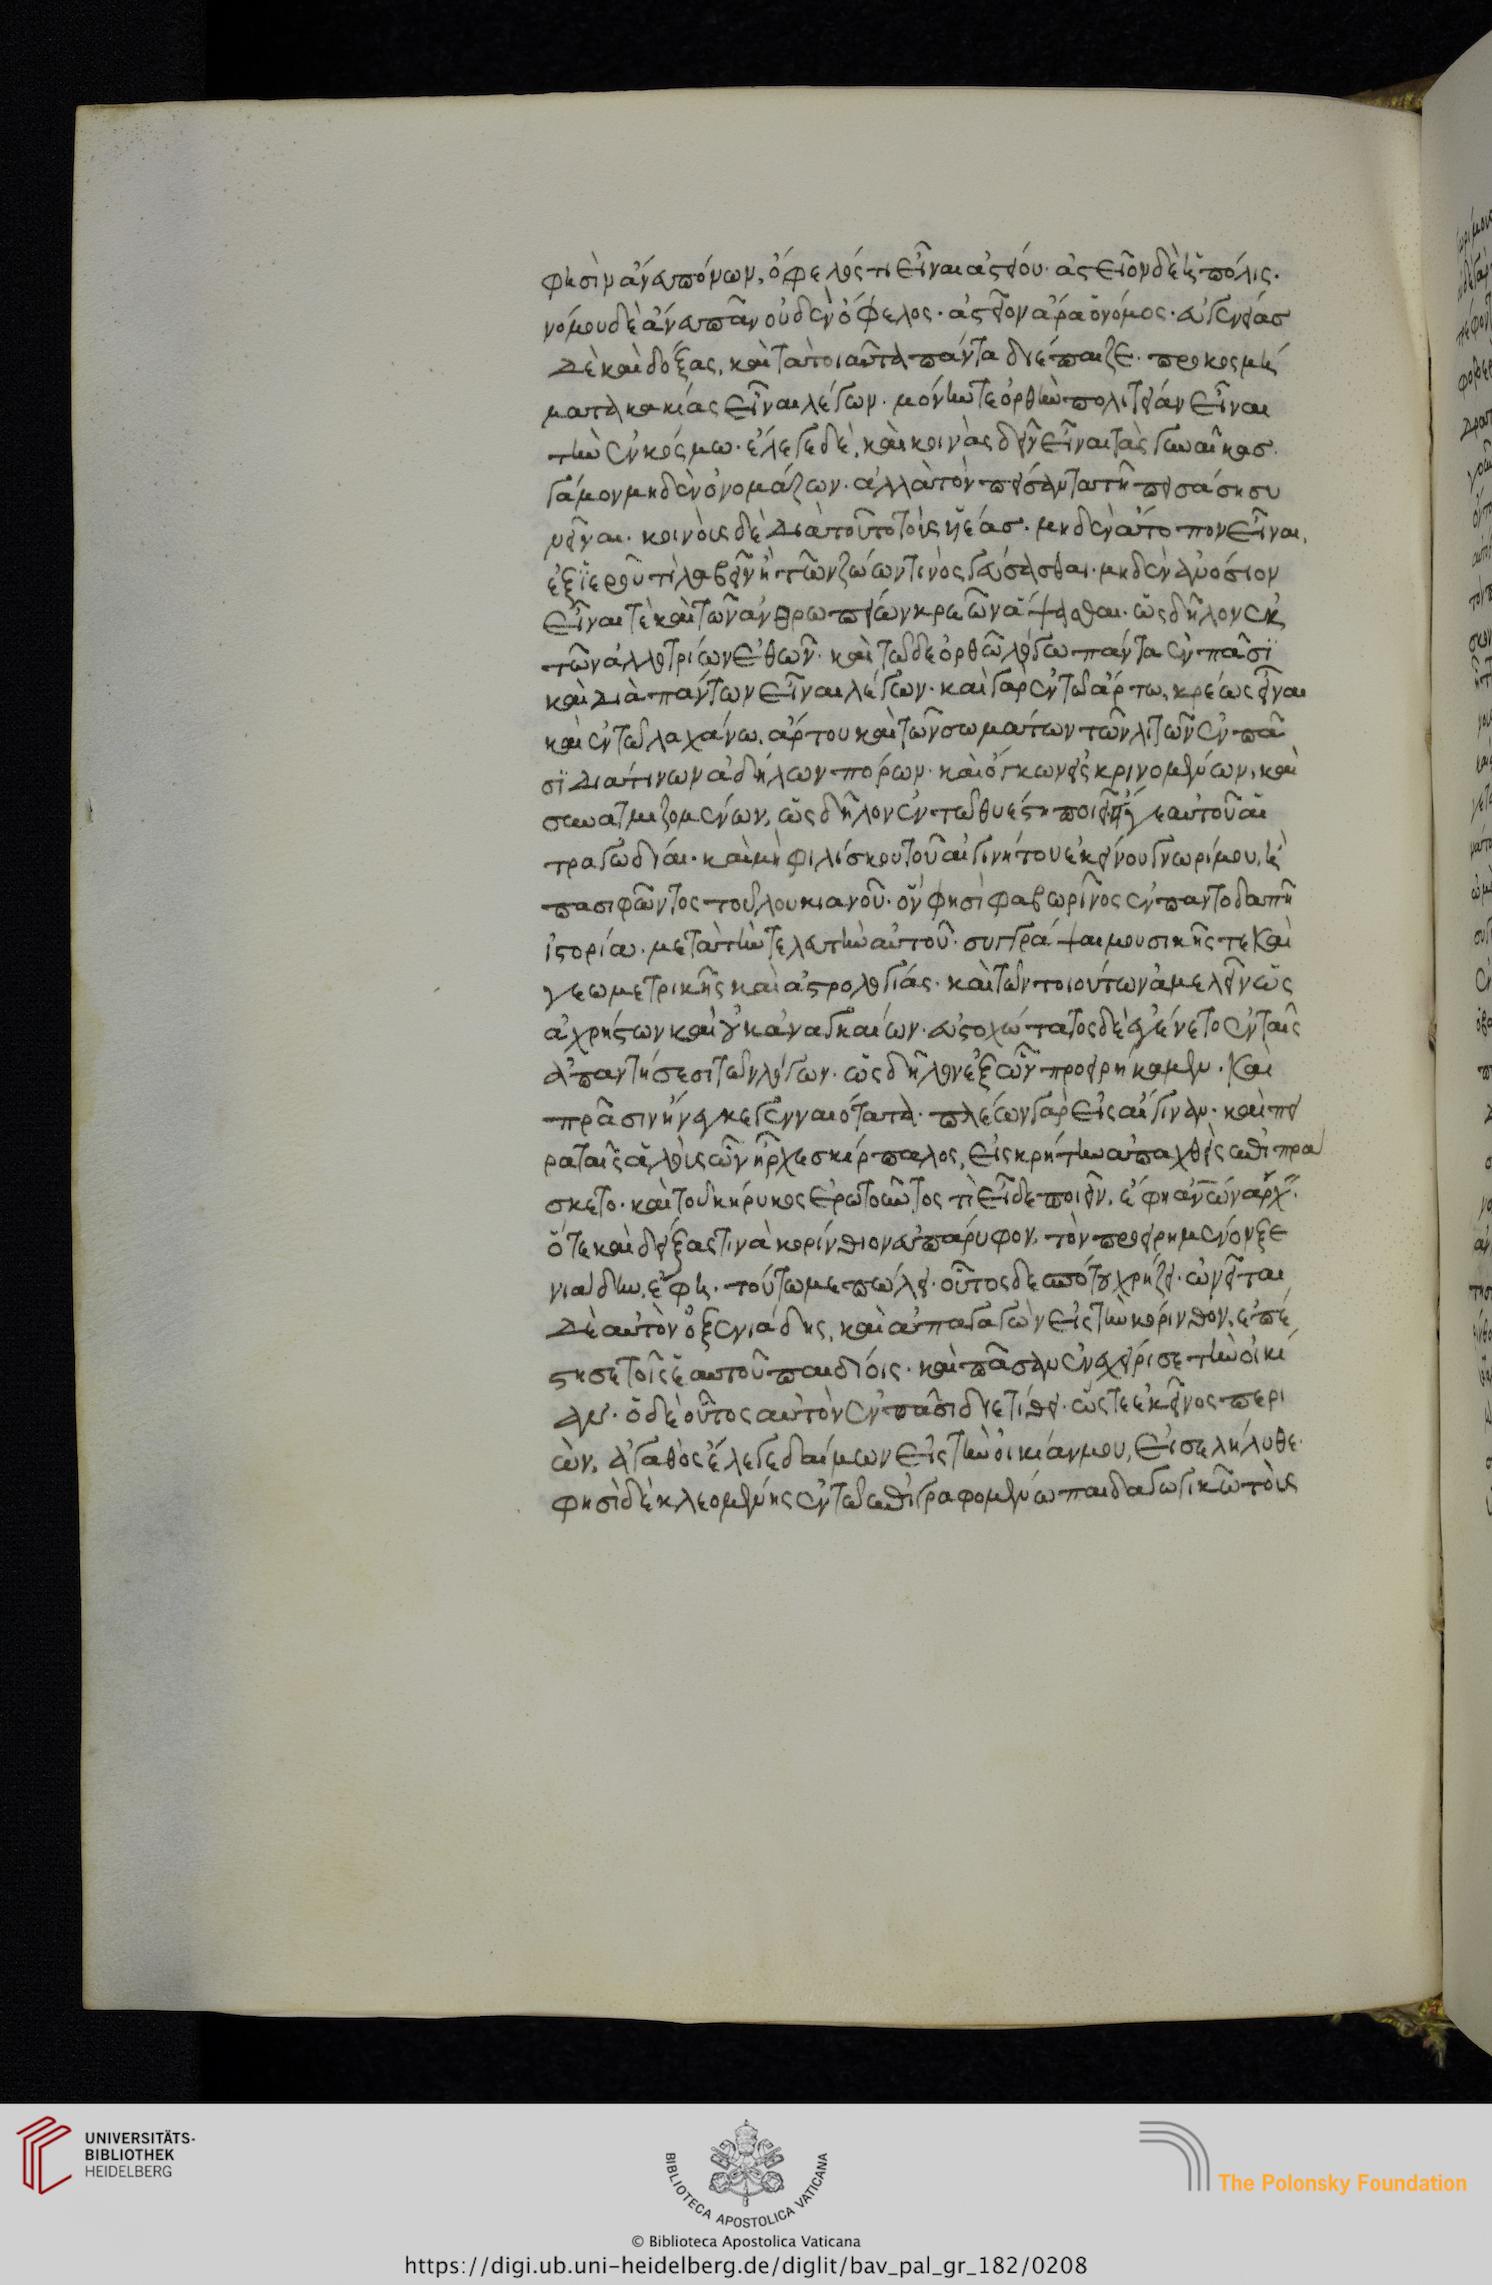 φησὶν ἄνευ πόνων, ὄφελός τι εἶναι ἀστείου· ἀστεῖον δὲ ἡ πόλις·
νόμου δὲ ἄνευ πᾶν οὐδὲν ὄφελος· ἀστεῖον ἄρα ὁ νόμος· εὐγενείας
δὲ καὶ δόξας, καὶ τὰ τοιαῦτα πάντα διέπαιζε· προκοσμή
ματα κακίας εἶναι λέγων· μόνην τε ὀρθὴν πολιτείαν εἶναι
τὴν ἐν κόσμω· ἔλεγε δὲ, καὶ κοινὰς δεῖν εἶναι τὰς γυναῖκας
γάμον μηδὲν ὀνομάζων· ἀλλὰ τὸν πείσαντα τῆ πεισάση συ
νεῖναι· κοινοὺς δὲ διὰ τοῦτο τοὺς υἱέας· μηδὲν ἄτοπον εἶναι,
ἐξ ἱεροῦ τὶ λαβεῖν ἢ τῶν ζώων τινὸς γεύσασθαι· μηδὲν ἀνόσιον
εἶναι τὲ καὶ τῶν ἀνθρωπείων κρεῶν ἅψασθαι· ὡς δῆλον ἐκ
τῶν ἀλλοτρίων ἐθῶν· καὶ τῶ δε ὀρθῶ λόγω πάντα ἐν πᾶσι
καὶ διὰ πάντων εἶναι λέγων· καὶ γὰρ ἐν τῶ ἄρτω, κρέως εἶναι
καὶ ἐν τῶ λαχάνω, ἄρτου καὶ τῶν σωμάτων τῶν λιτῶν ἐν πᾶ
σι διά τινων ἀδήλων πόρων· καὶ ὄγκων εἰσκρινομένων, καὶ
συνατμιζομένων, ὡς δῆλον ἐν τῶ θυέστη ποιεῖ εἴγε αὐτοῦ αἱ
τραγωδίαι· καὶ μὴ φιλίσκου τοῦ αἰγινήτου ἐκείνου γνωρίμου, ἢ
πασιφῶντος τοῦ λουκιανοῦ· ὅν φησὶ φαβωρῖνος ἐν παντοδαπῆ
ἱστορία· μετὰ τὴν τελευτὴν αὐτοῦ· συγγράψαι μουσικῆς τε καὶ
γεωμετρικῆς καὶ ἀστρολογίας· καὶ τῶν τοιούτων ἀμελεῖν ὡς
ἀχρήστων καὶ οὐκ ἀναγκαίων· εὐστοχώτατος δὲ ἐγένετο ἐν ταῖς
ἀπαντήσεσι τῶν λόγων· ὡς δῆλον ἐξ ὧν προειρήκαμεν· καὶ
πρᾶσιν ἤνεγκε γενναιότατα· πλέων γὰρ εἰς αἴγιναν· καὶ πει
ραταῖς ἁλοὺς ὧν ἦρχε σκίρπαλος, εἰς κρήτην ἀπαχθεὶς ἐπιπρά
σκετο· καὶ τοῦ κήρυκος ἐρωτῶντος τὶ εἶδε ποιεῖν, ἔφη ἀν̅ων ἄρχ̅·
ὅτε καὶ δείξας τινὰ κορίνθιον εὐπάρυφον, τὸν προειρημένον ξε
νιάδην, ἔφη· τούτω με πώλει· οὗτος δεσπότου χρήζει· ὠνεῖται
δὲ αὐτὸν ὁ ξενιάδης, καὶ ἀπαγαγὼν εἰς τὴν κόρινθον, ἐπέ
στησε τοῖς ἑαυτοῦ παιδίοις· καὶ πᾶσαν ἐνεχείρισε τὴν οἰκί
αν· ὁ δὲ οὗτος αὐτὸν ἐν πᾶσι διετίθει· ὥστε ἐκεῖνος περι
ὼν, ἀγαθὸς ἔλεγε δαίμων εἰς τὴν οἰκίαν μου, εἰσελήλυθε·
φησὶ δὲ κλεομένης ἐν τῶ ἐπιγραφομένω παιδαγωγικῶ τοὺς
UNIVERSITÄTS-
BIBLIOTHEK
HEIDELBERG
BIBLIOTECA APOSTOLICA VATICANA
The Polonsky Foundation
© Biblioteca Apostolica Vaticana
https://digi.ub.uni-heidelberg.de/diglit/bav_pal_gr_182/0208